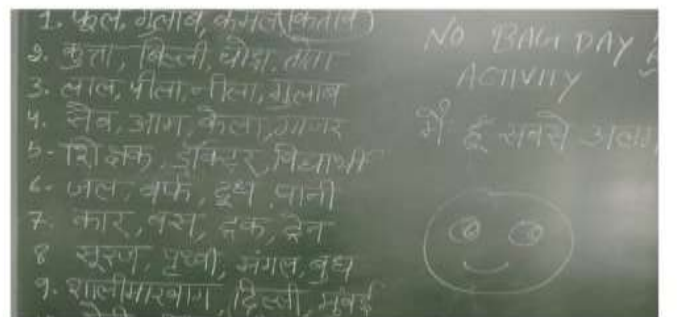 1. फूल, गुलाब, कमल, (किताब)
2. कुत्ता, बिल्ली, घोड़ा, तोता
3. लाल, पीला, नीला, गुलाब
4. सेब, आम, केला, गाजर
5. शिक्षक, डॉक्टर, विद्यार्थी
6. जल, बर्फ, दूध, पानी
7. कार, बस, ट्रक, ट्रेन
8 सूरज, पृथ्वी, मंगल, बुध
9. शालीमारबाग, दिल्ली, मुंबई
NO BAG DAY
ACTIVITY
मैं हूँ सबसे अलग